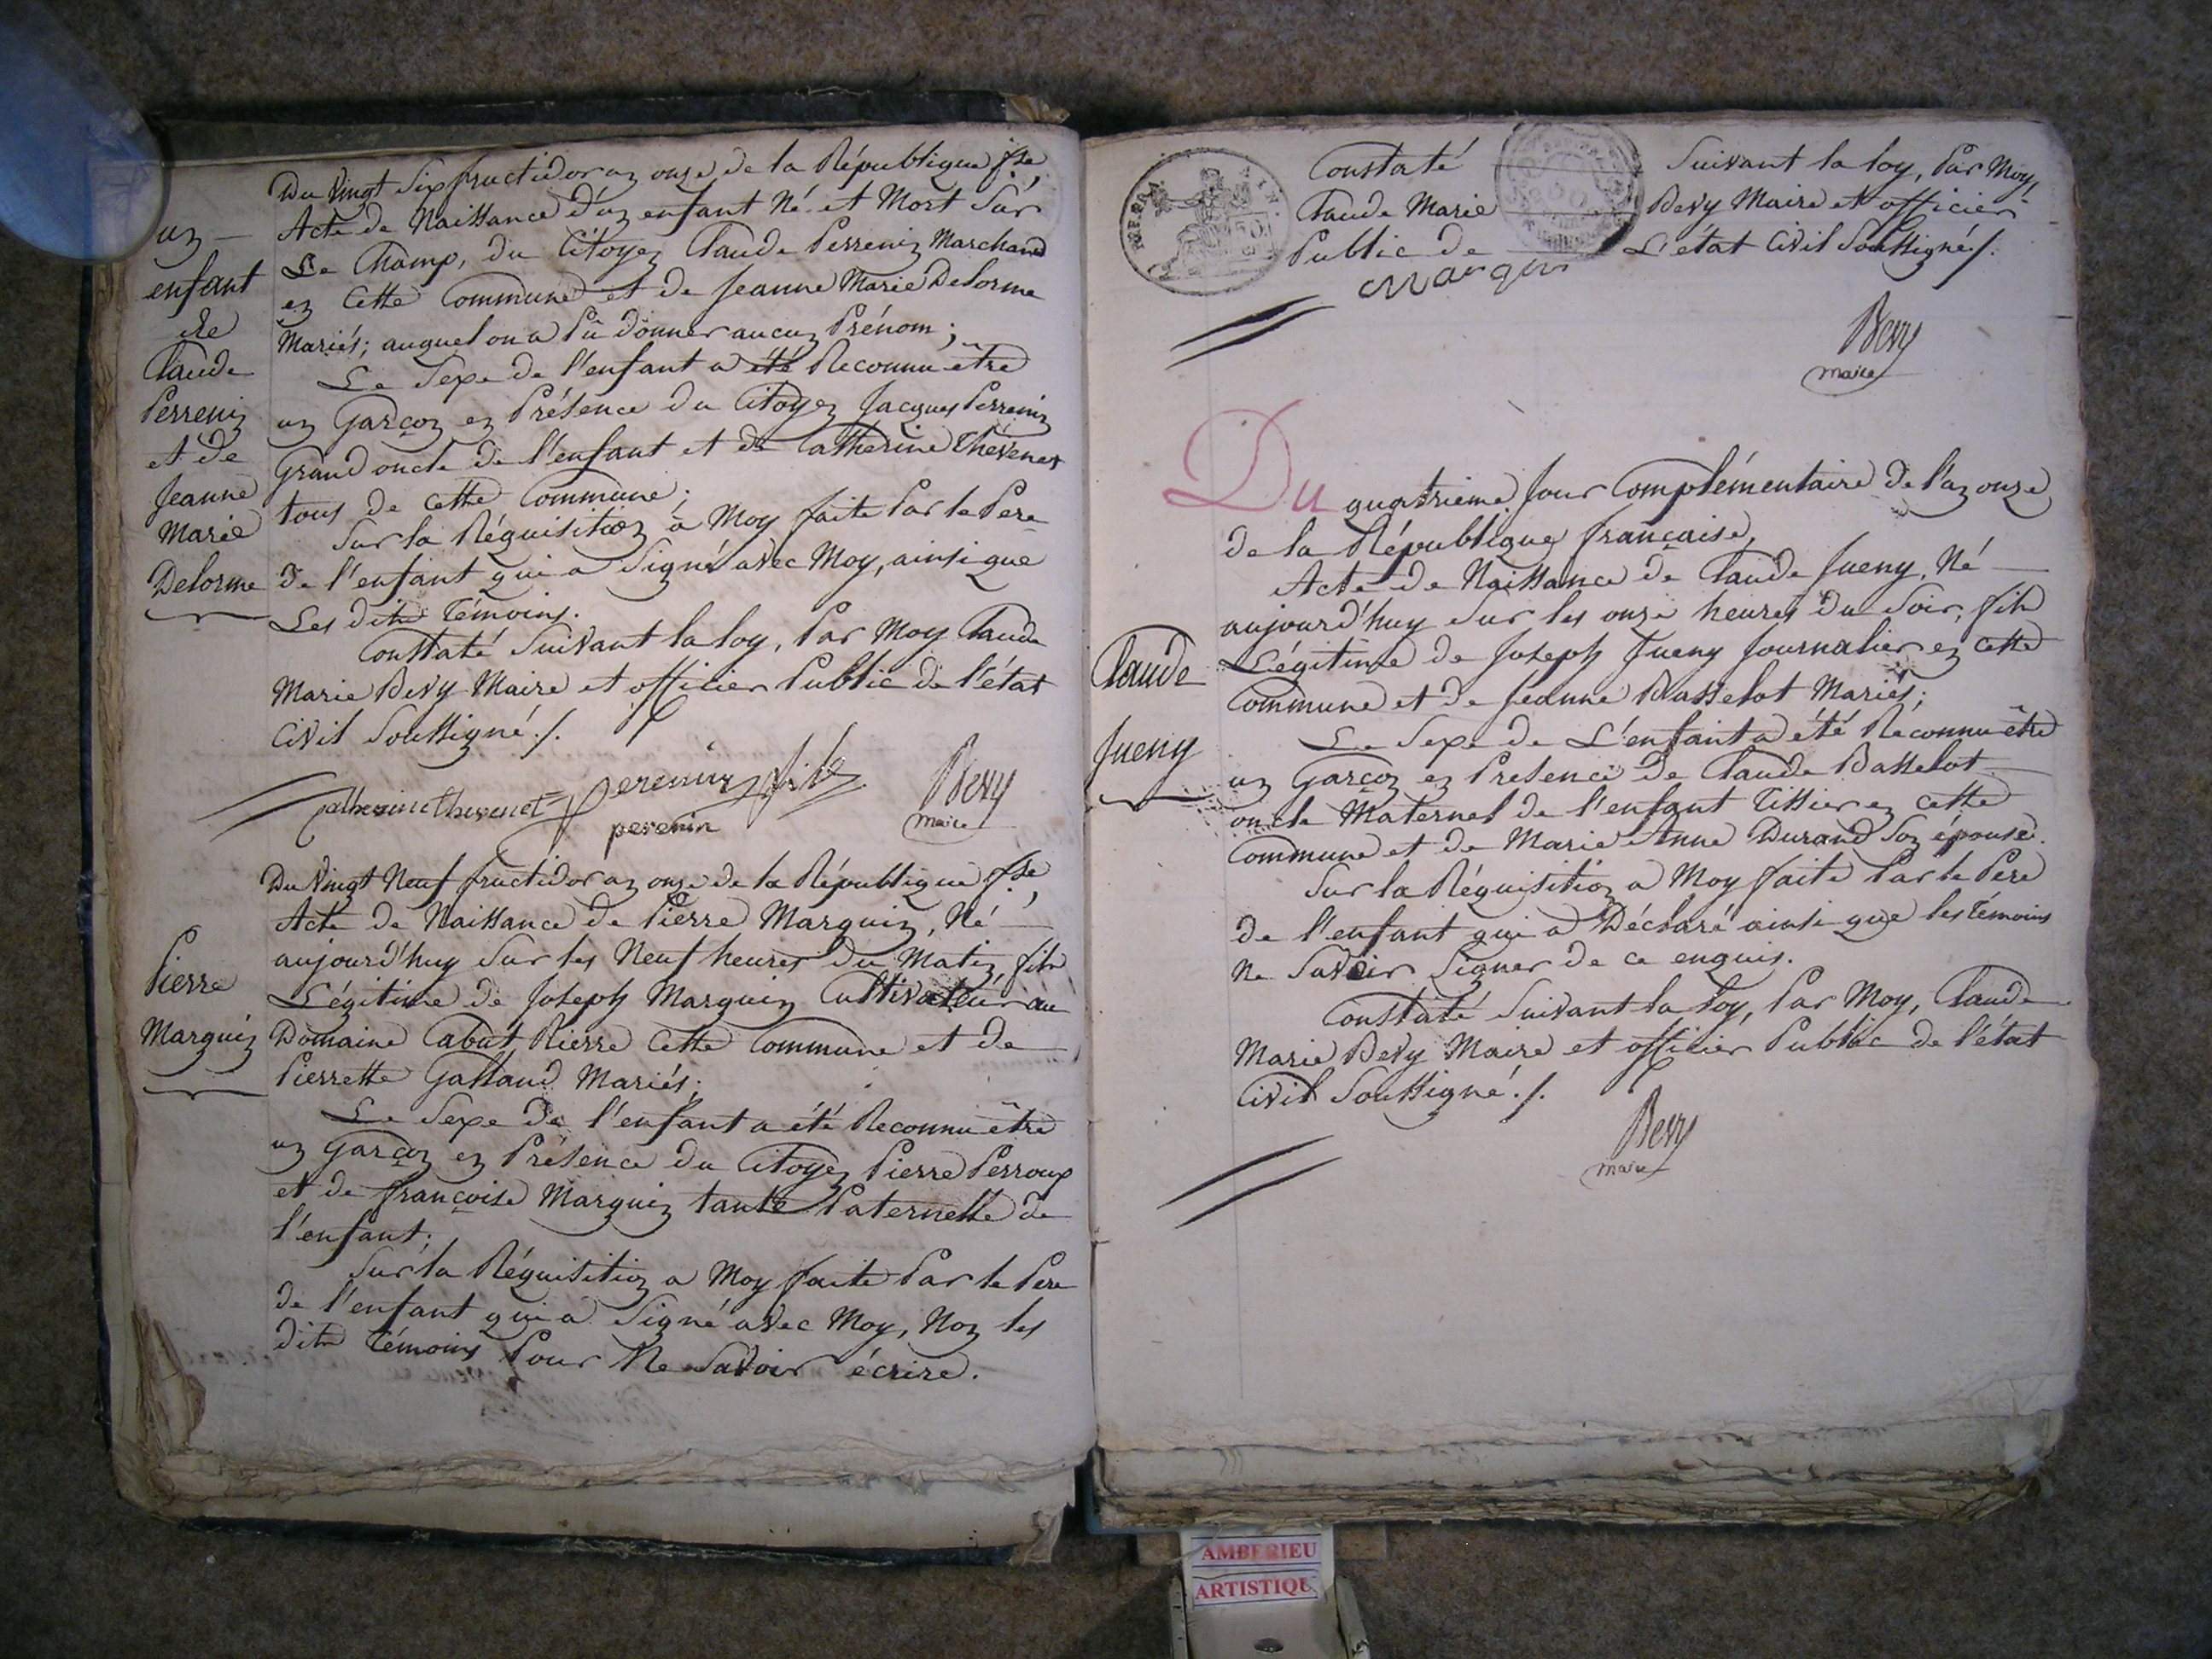 un
enfant
de
Claude
Perrenin
et de
Jeanne
Marie
Delorme
Du Vingt Six fructidor an onze de la République fse,
Acte de Naissance d'un enfant Né et Mort Sur
Le Champ, du Citoyen Claude Perrenin Marchand
en Cette Commune et de Jeanne Marie Delorme
Mariés; auquel on a Pû donner aucun Prénom;
Le Sexe de l'enfant a été Reconnu être
un Garçon en Présence du Citoyen Jacques Perrenin
Grand oncle de l'enfant et de Catherine Thévenet
tous de Cette Commune;
Sur la Réquisition à Moy faite Par le Pere
de l'enfant qui a Signé avec Moy, ainsi que
Les dits Témoins.
Constaté Suivant la loy, Par Moy Claude
Marie Bevy Maire et officier Public de l'état
Civil Soussigné./.
Catherine thevenet perenin fils Bevy
perenin maire
Pierre
Marguin
Du Vingt Neuf fructidor an onze de la République fse,
Acte de Naissance de Pierre Marguin, Né
aujourd'huy Sur les Neuf heures du Matin, fils
Légitime de Joseph Marguin Cultivateur au
Domaine Cabut Rierre Cette Commune et de
Pierrette Galland Mariés;
Le Sexe de l'enfant a été Reconnu être
un Garçon en Présence du Citoyen Pierre Perroux
et de françoise Marguin tante Paternelle de
l'enfant;
Sur la Réquisition a Moy faite Par le Pere
de l'enfant qui a Signé avec Moy, Non les
dits Témoins Pour Ne Savoir écrire.
Constaté Suivant la loy, Par Moy,
Claude Marie Bevy Maire et officier
Public de L'état Civil Soussigné./.
Marguin
Bevy
maire
Claude
Jueny
Du quatrieme Jour Complémentaire de l'an onze
de la République française,
Acte de Naissance de Claude Jueny, Né
aujourd'huy Sur les onze heures du Soir, fils
Légitime de Joseph Jueny Journalier en Cette
Commune et de Jeanne Basselot Mariés;
Le Sexe de L'enfant a été Reconnu être
un Garçon en Presence de Claude Basselot
oncle Maternel de l'enfant Tissier en Cette
Commune et de Marie Anne Durand Son épouse.
Sur la Réquisition a Moy faite Par le Pere
de l'enfant qui a Déclaré ainsi que les Témoins
Ne Savoir Signer de ce enquis.
Constaté Suivant la loy, Par Moy, Claude
Marie Bevy Maire et officier Public de l'état
Civil Soussigné./.
Bevy
maire
AMBERIEU
ARTISTIQU